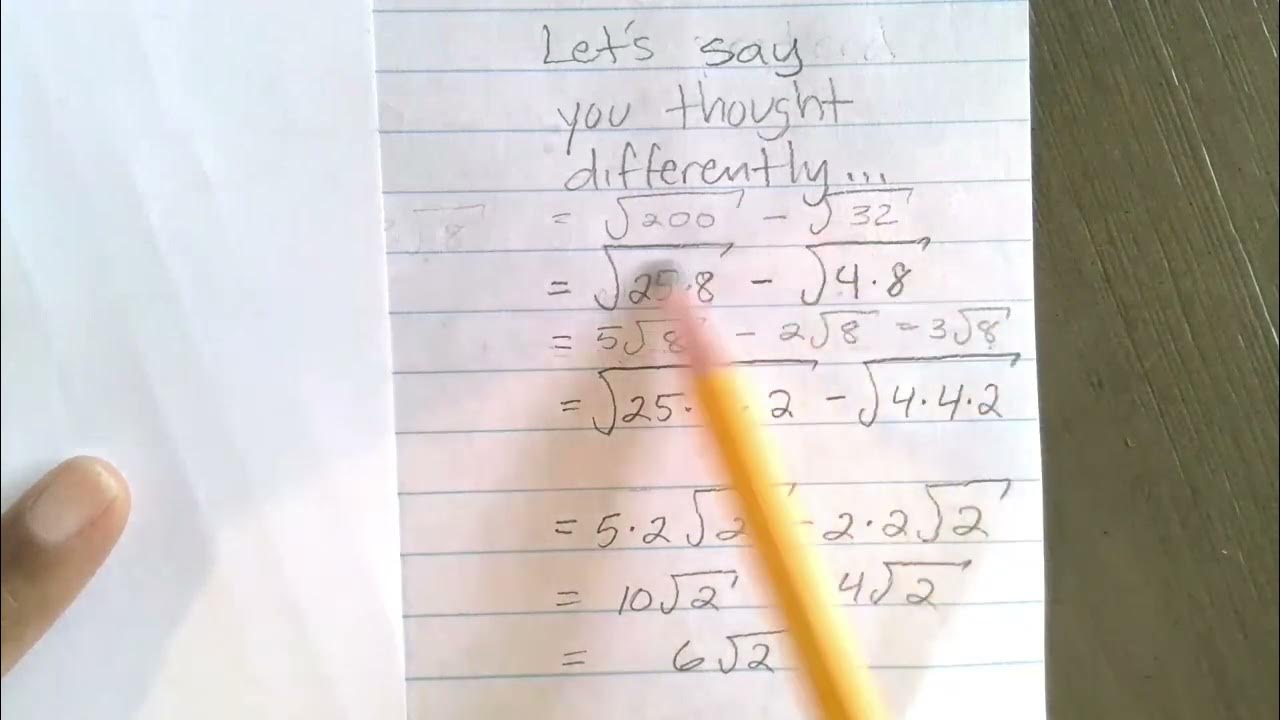 Let's say
you thought
differently...
= √200 - √32
= √25·8 - √4·8
= 5√8 - 2√8 = 3√8
= √25· · 2 - √4·4·2
= 5·2√2 - 2·2√2
= 10√2 4√2
= 6√2